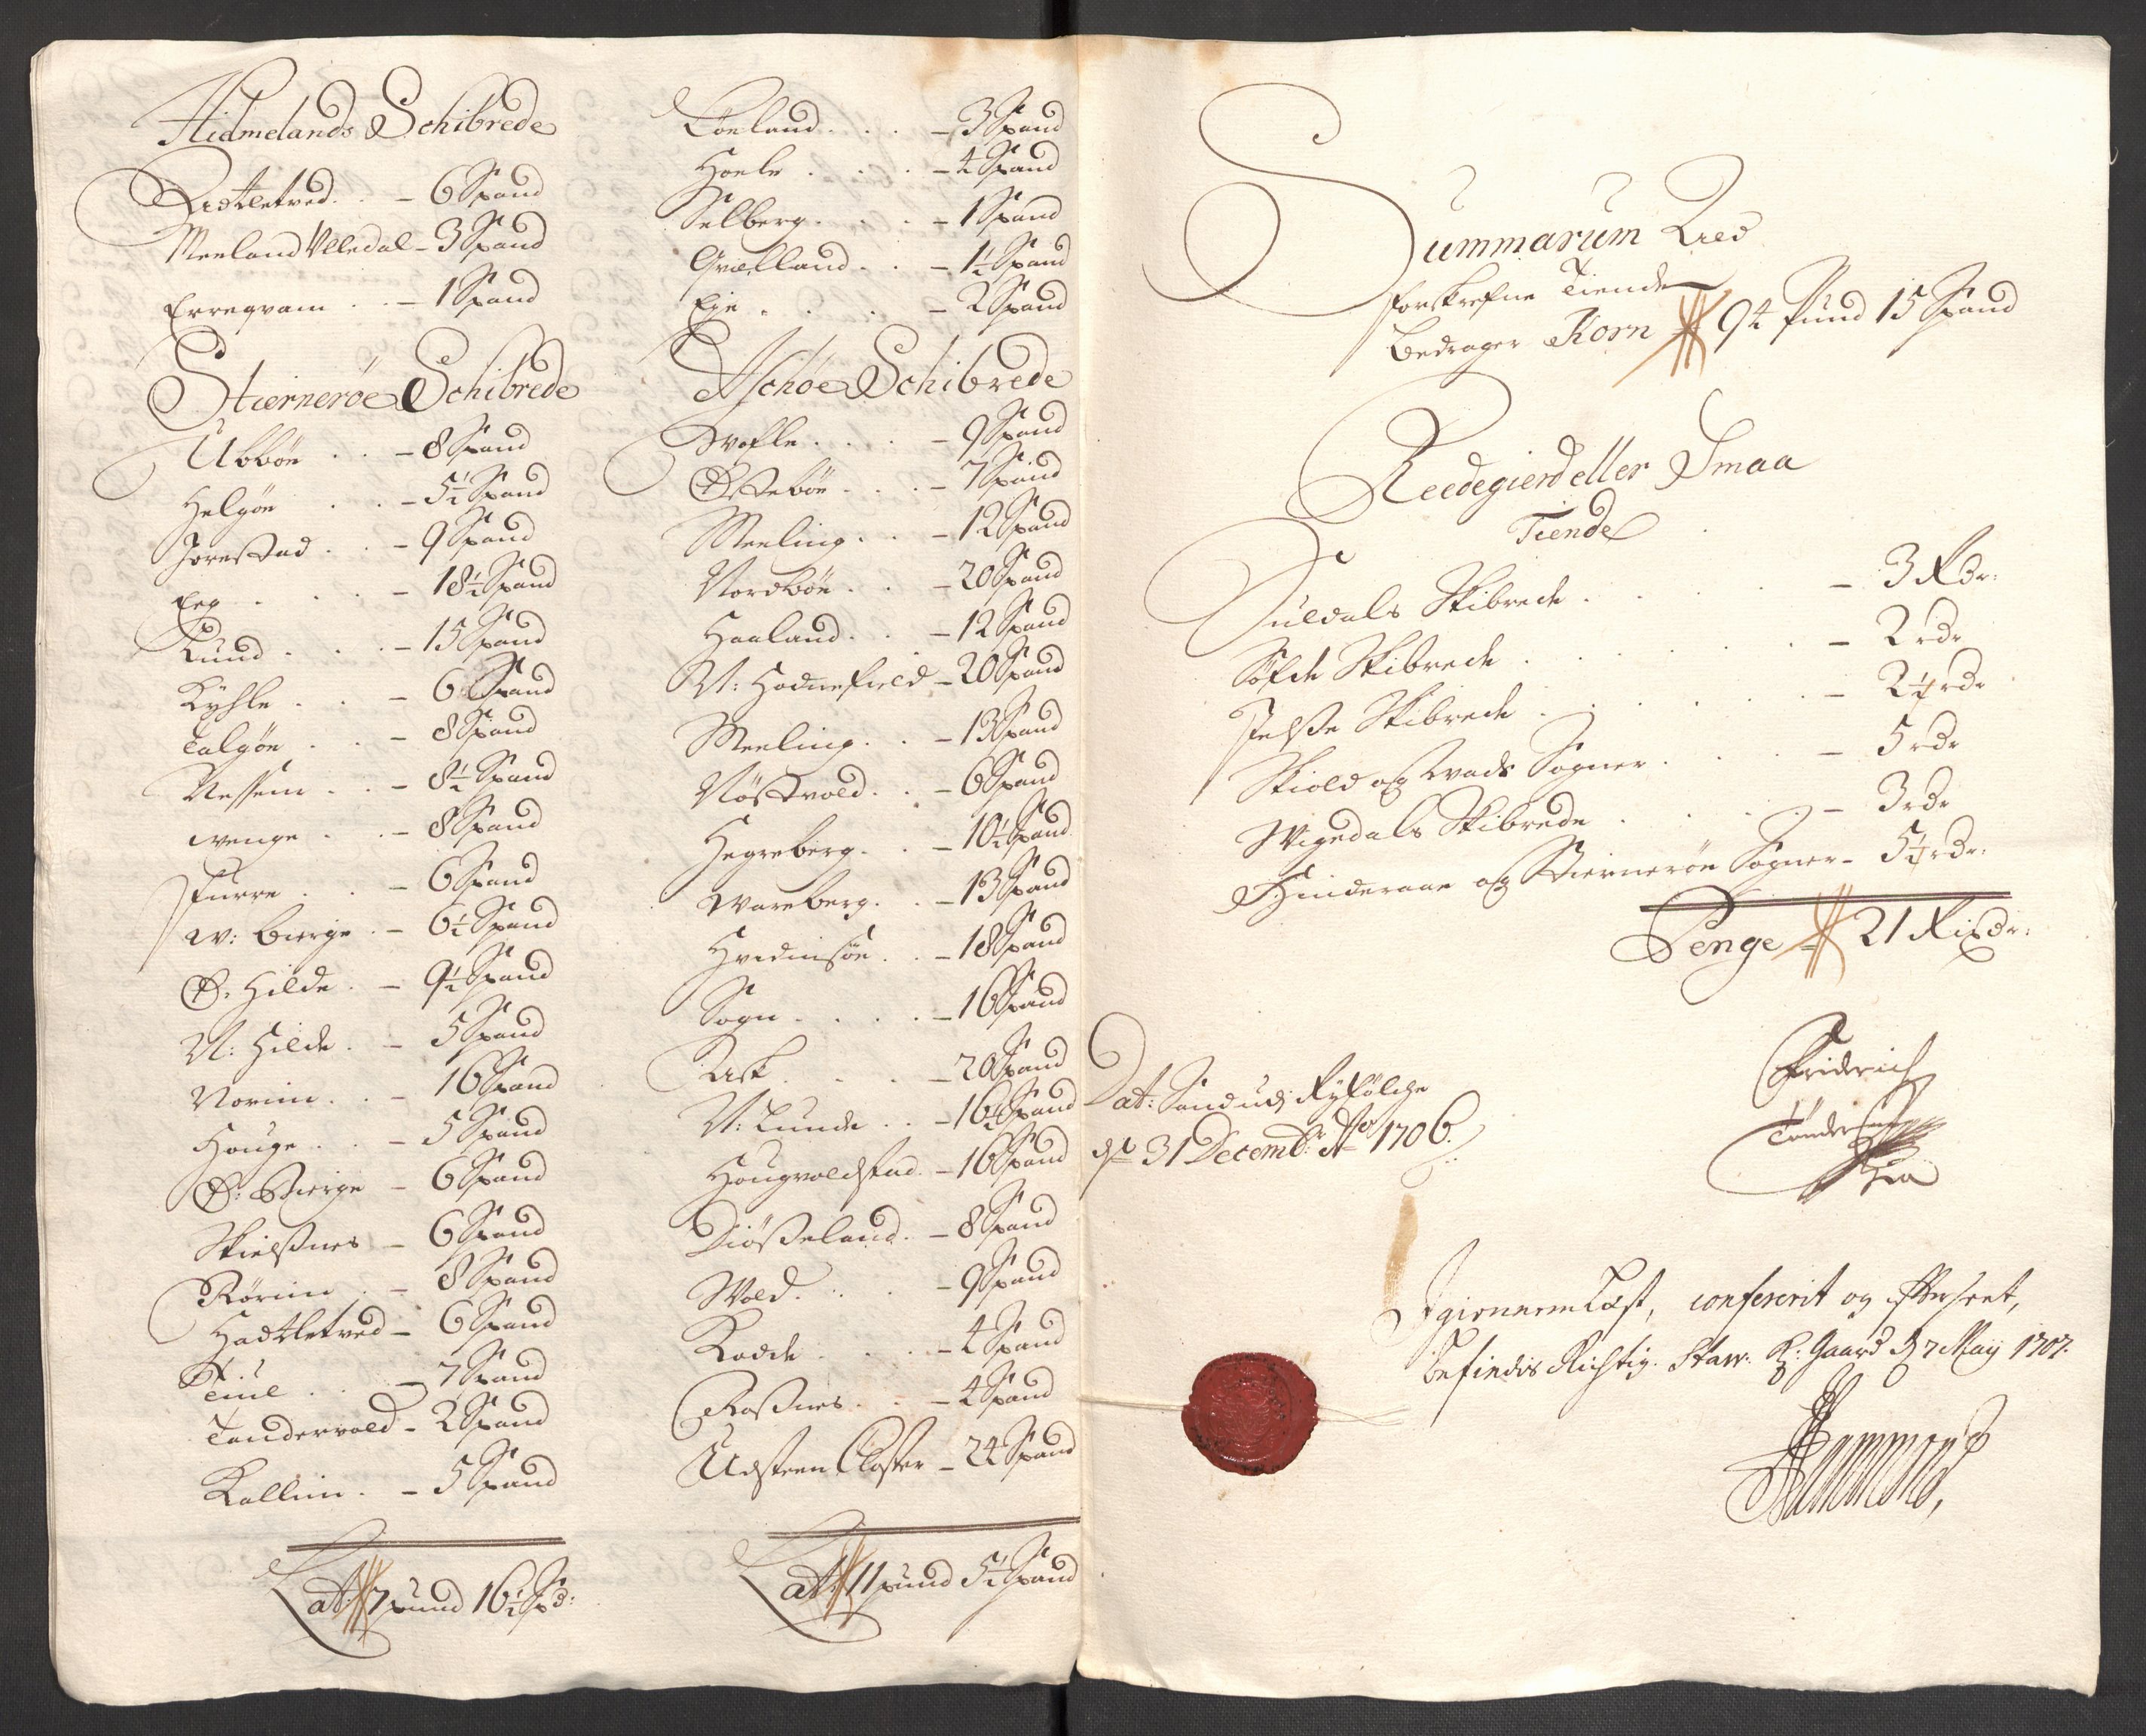 Hielmelands Schibrede
- 6 Spand
Meeland Ulledal - 3 Spand
Erreqvam . . - 1 Spand
Stiernerøe Schibrede
Ubbøe . . - 8 Spand
Helgøe . . - 5½ Spand
Jørestad . . - 9 Spand
Eeg . . . - 18½ Spand
Lund . . . - 15 Spand
Kyhle . . - 6 Spand
Talgøe . . - 8 Spand
Nessem . . - 8½ Spand
Wenge . . - 8 Spand
Furre . . - 6 Spand
W: Bierge . - 6½ Spand
Ø: Hilde . - 9½ Spand
N: Hilde . - 5 Spand
Norim . . - 16 Spand
Houge . . - 5 Spand
Ø: Bierge - 6 Spand
Skielßnes - 6 Spand
Rørim . - 8 Spand
Hadtletved - 6 Spand
- 7 Spand
Tandervold - 2 Spand
Kallim . - 5 Spand
Lat: 7 pund 16½ Spd:
- 3 Spand
Hoele . . . - 4 Spand
Selberg . . . - 1 Spand
Qvælland . . - 1½ Spand
Eje . . . - 2 Spand
Aschøe Schibrede
- 9 Spand
Østebøe . . . - 7 Spand
Meeling . . - 12 Spand
Nordbøe . . - 20 Spand
Haaland . . - 12 Spand
N: Hodnefield - 20 Spand
Meeling . . - 13 Spand
Nøstvold . . - 6 Spand
Hegreberg . . - 10½ Spand
Wareberg . . - 13 Spand
Hvedingsøe . . - 18 Spand
Sogn . . . . - 16 Spand
Ask . . . - 20 Spand
N: Lunde . . - 16½ Spand
Hougvoldstad - 16 Spand
Diøßeland . - 8 Spand
Wold . . . - 9 Spand
Kodde . . . - 4 Spand
Raßnes . . - 4 Spand
Udsteen Closter - 24 Spand
Lat: 11 pund 5½ Spand
Summarum
forskrefne Tiende
bedrager Korn 94 Pund 15 Spand
Reedegierd eller Smaa
Tiende
Suldals Skibrede . . . . - 3 Rdr:
Søfde Skibrede . . . . . - 2 rdr
Jelße Skibrede . . . . . - 2½ rdr
Skiold og Wads Sogner . . - 5 rdr
Wigedals Skibrede . . . - 3 rdr
Hinderaae og Stiernerøe Sogner - 5½ rdr:
Penge - 21 Rixdr:
Dat: Sand udj Ryfølche
d. 31 Decemb: Ao 1706.
Friderich
Igiennemlæst, confererit og efterseet,
befindes Rigtig. Staw: K: Gaard d 7 Maij 1707.
Hammond,